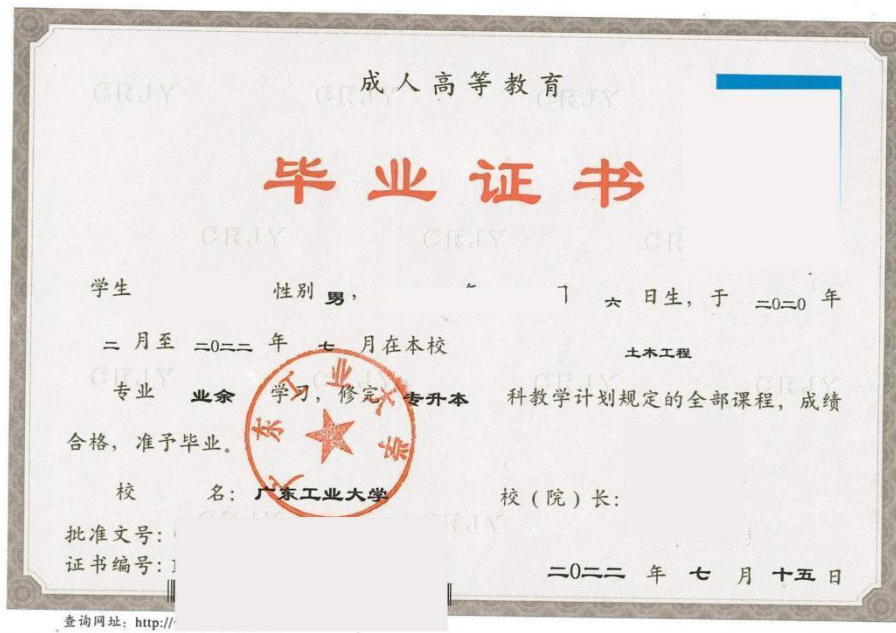 成人高等教育
毕业证书
CRJY CRJY CRJY
CRJY CRJY CR
学生 性别 男, 六 日生, 于 二〇二〇 年
二 月至 二〇二二 年 七 月在本校 土木工程
专业 业余 学习, 修完 专升本 科教学计划规定的全部课程, 成绩
合格, 准予毕业。
广东工业大学
校 名: 广东工业大学 校(院)长:
批准文号:
证书编号: 1
二〇二二 年 七 月 十五 日
查询网址: http://